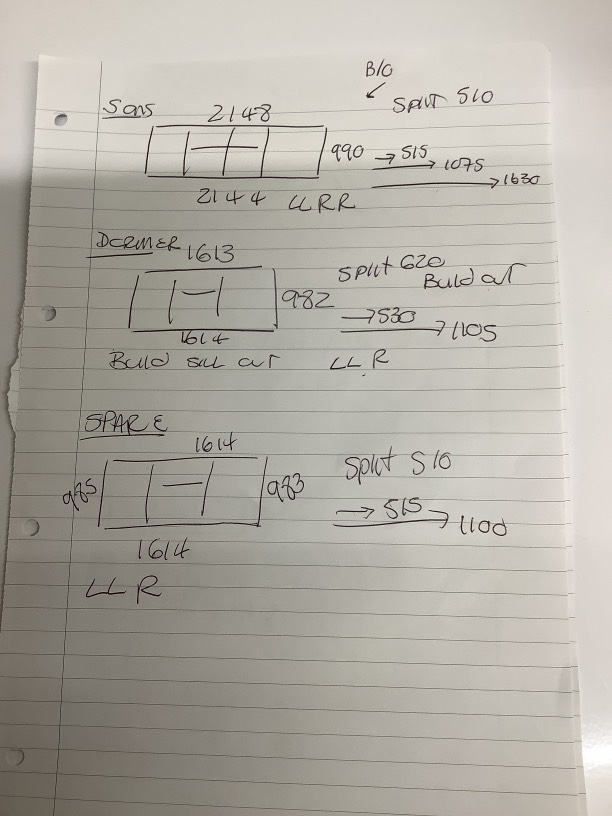 B/O
Sons 2148 Split 510
990 → 515
→ 1075
→ 1630
2144 LLRR
DORMER 1613
Split 620
Build out
982
→ 530
→ 1105
1614
Build sill out LL R
SPARE
1614
Split 510
985 983
→ 515
→ 1100
1614
LL R